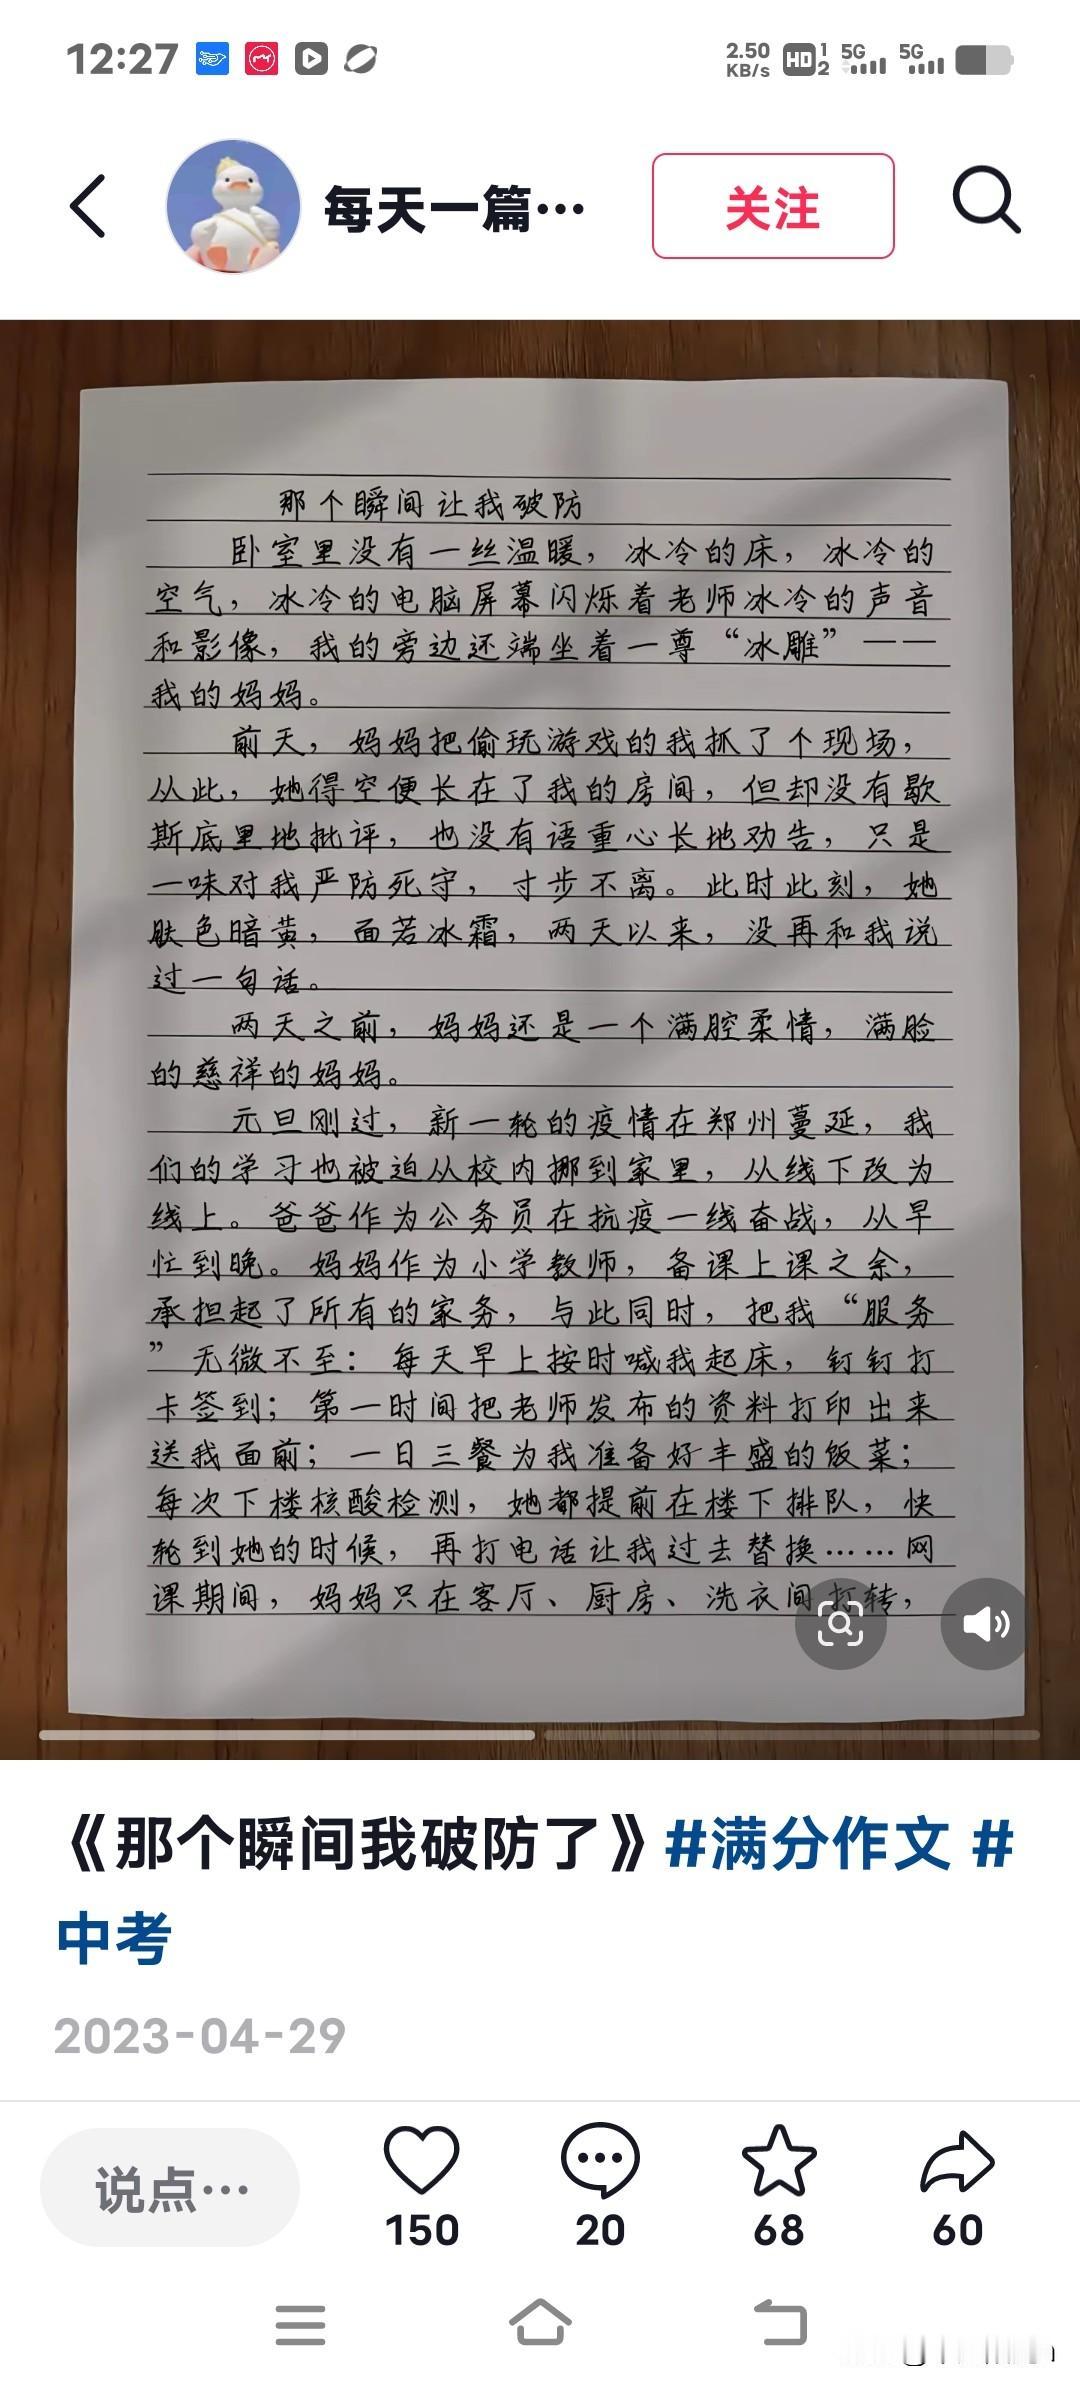 12:27
2.50 KB/s HD 1 2 5G 5G
每天一篇…
关注
那个瞬间让我破防
卧室里没有一丝温暖，冰冷的床，冰冷的
空气，冰冷的电脑屏幕闪烁着老师冰冷的声音
和影像，我的旁边还端坐着一尊“冰雕”——
我的妈妈。
前天，妈妈把偷玩游戏的我抓了个现场，
从此，她得空便长在了我的房间，但却没有歇
斯底里地批评，也没有语重心长地劝告，只是
一味对我严防死守，寸步不离。此时此刻，她
肤色暗黄，面若冰霜，两天以来，没再和我说
过一句话。
两天之前，妈妈还是一个满腔柔情，满脸
的慈祥的妈妈。
元旦刚过，新一轮的疫情在郑州蔓延，我
们的学习也被迫从校内挪到家里，从线下改为
线上。爸爸作为公务员在抗疫一线奋战，从早
忙到晚。妈妈作为小学教师，备课上课之余，
承担起了所有的家务，与此同时，把我“服务
”无微不至：每天早上按时喊我起床，钉钉打
卡签到；第一时间把老师发布的资料打印出来
送我面前；一日三餐为我准备好丰盛的饭菜；
每次下楼核酸检测，她都提前在楼下排队，快
轮到她的时候，再打电话让我过去替换……网
课期间，妈妈只在客厅、厨房、洗衣间打转，
《那个瞬间我破防了》#满分作文 #
中考
2023-04-29
说点…
150
20
68
60